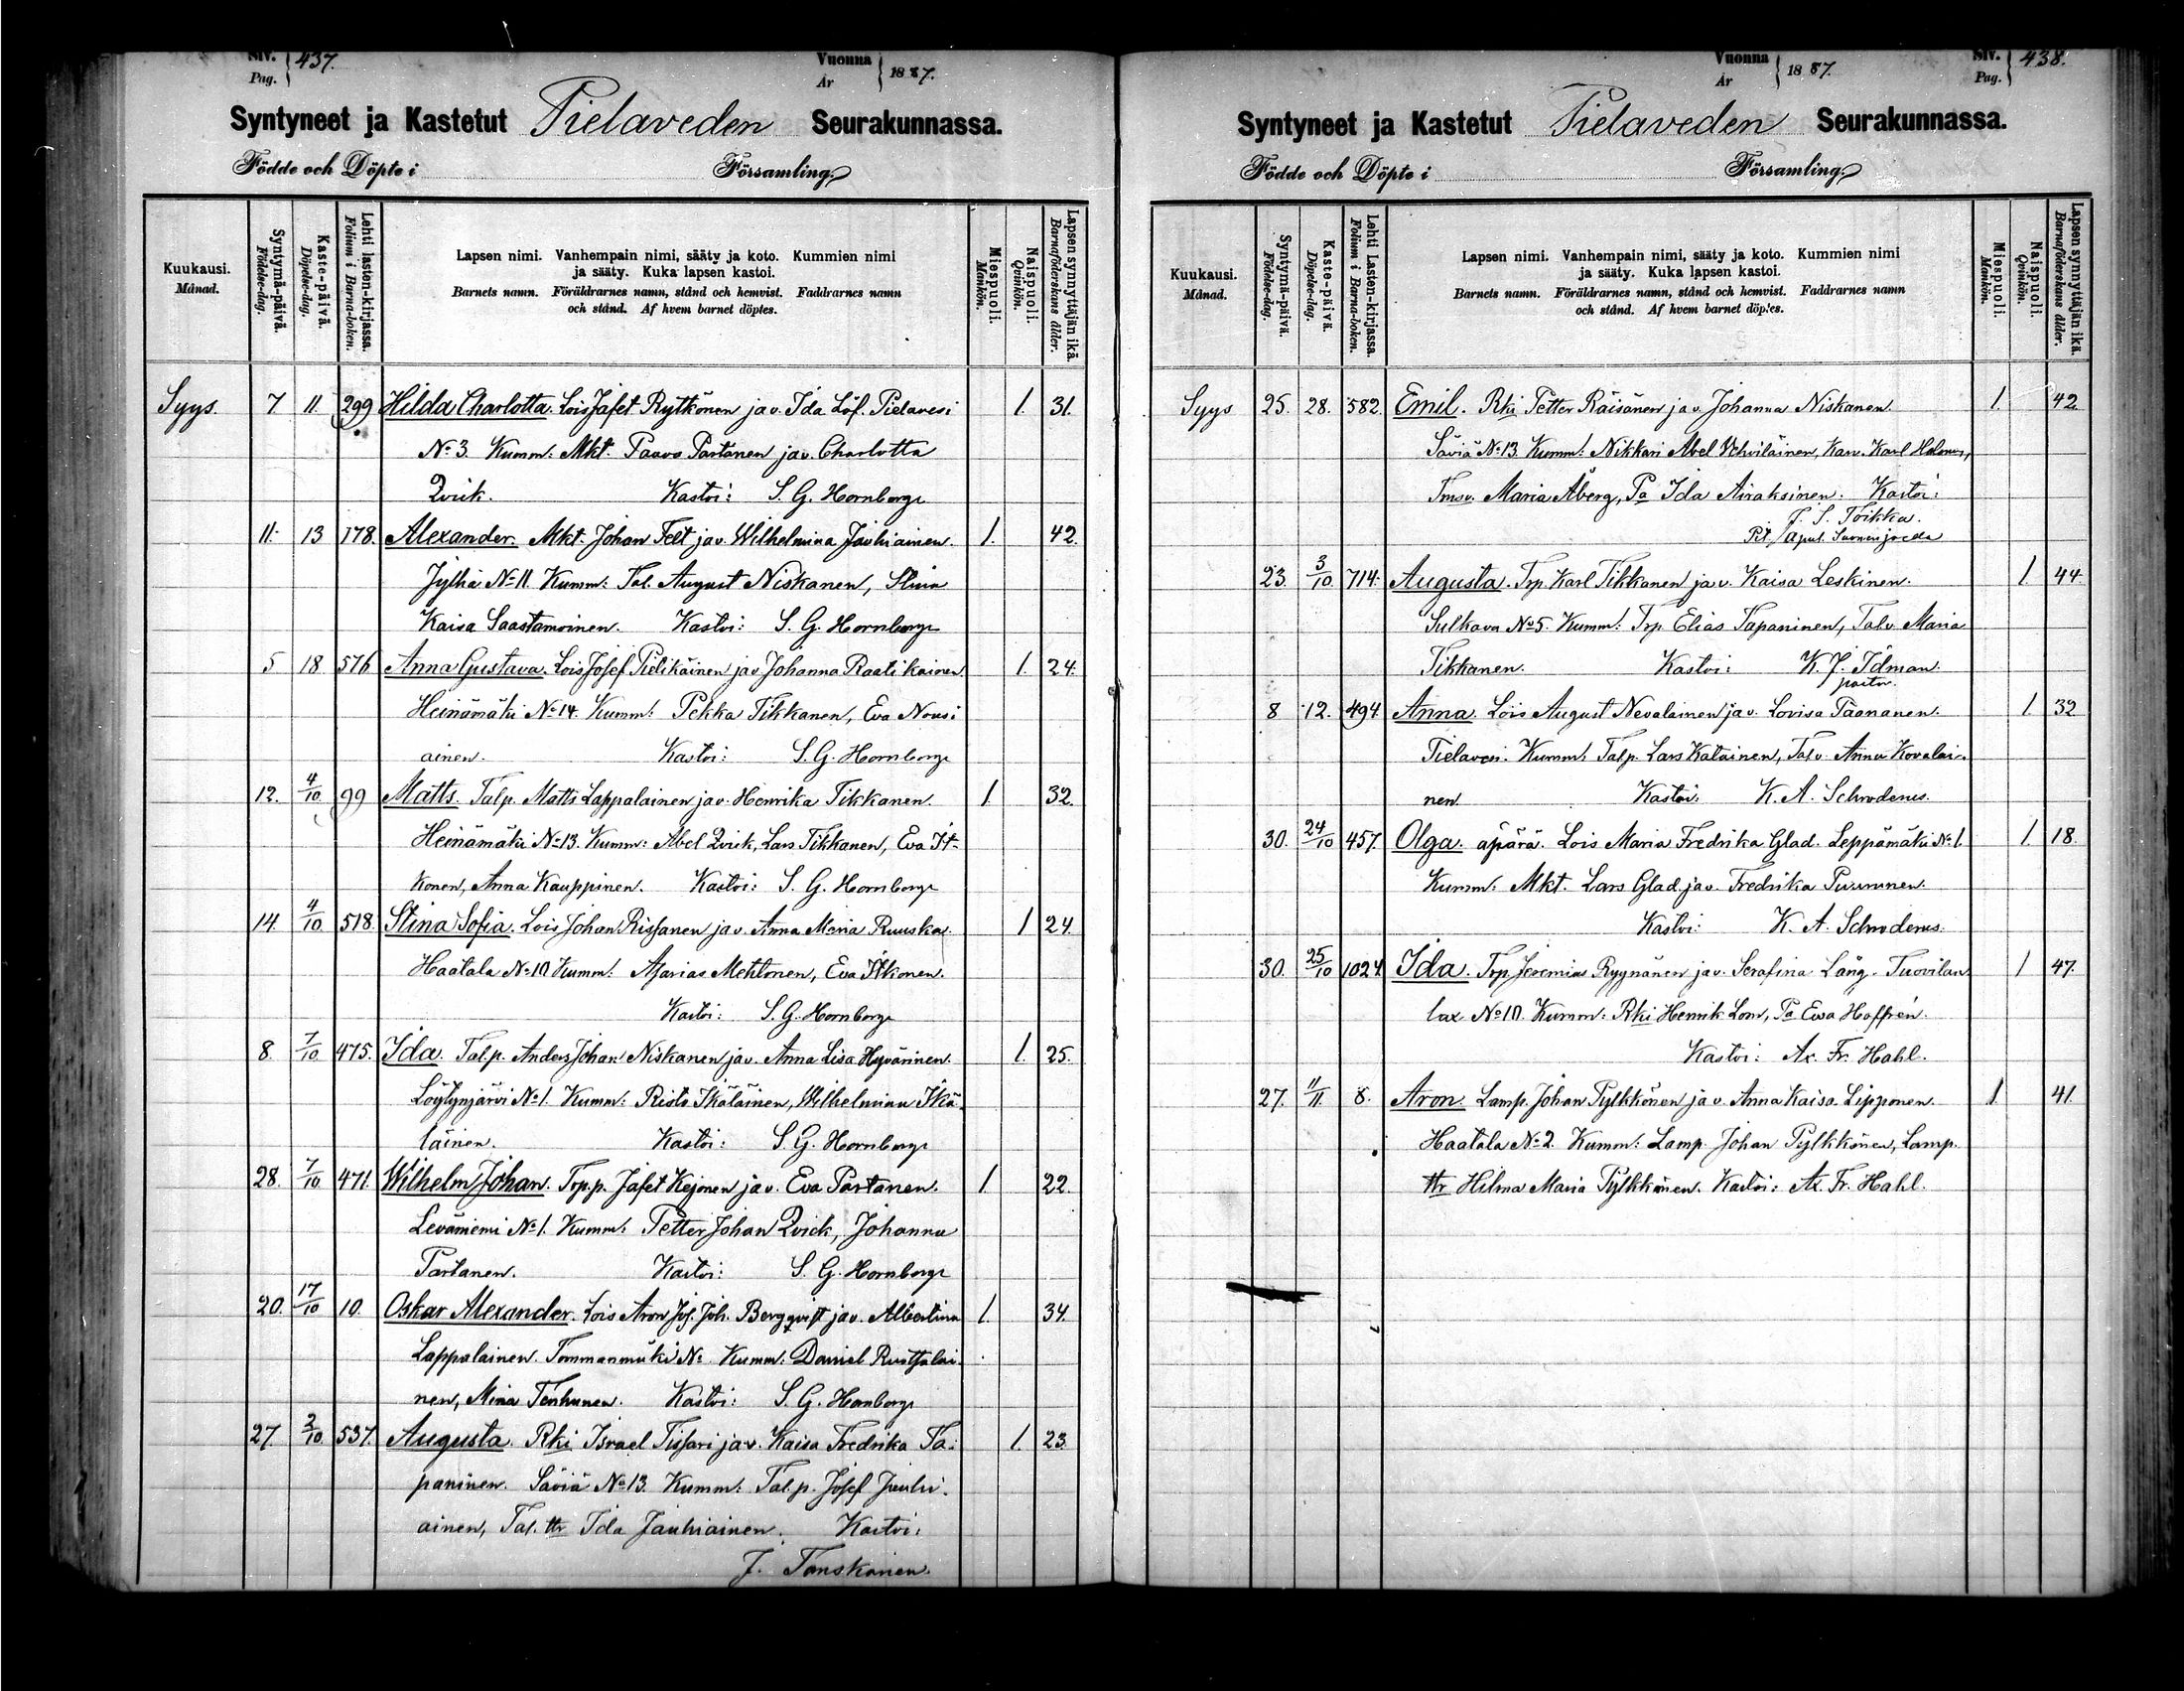 Siv. Pag. 437.
Vuonna År 1887.
Syntyneet ja Kastetut Pielaveden Seurakunnassa.
Födde och Döpte i Församling.
Kuukausi. Månad.
Syntymä-päivä. Födelse-dag.
Kaste-päivä. Döpelse-dag.
Lehti lasten-kirjassa. Folium i Barna-boken.
Lapsen nimi. Vanhempain nimi, sääty ja koto. Kummien nimi
ja sääty. Kuka lapsen kastoi.
Barnets namn. Föräldrarnes namn, stånd och hemvist. Faddrarnes namn
och stånd. Af hvem barnet döptes.
Miespuoli. Mankön.
Naispuoli. Qvinkön.
Lapsen synnyttäjän ikä. Barnaföderskans ålder.
Syys 7 11 299 Hilda Charlotta. Lois Jafet Rytkönen ja v. Ida Löf. Pielavesi 1. 31.
No 3. Kumm: Mkt. Paavo Partanen ja v. Charlotta
Qvick. Kastoi: S. G. Hornborg
11. 13 178. Alexander. Mkt. Johan Felt ja v. Wilhelmina Jauhiainen. 1. 42.
Jylhä No 11. Kumm: Tal. August Niskanen, Stina
Kaisa Saastamoinen. Kastoi: S. G. Hornborg
5 18. 576 Anna Gustava. Lois Josef Pielikäinen ja v Johanna Raatikainen. 1. 24.
Heinämäki No 14. Kumm: Pekka Tikkanen, Eva Nousi
ainen. Kastoi: S. G. Hornborg
12. 4/10 99 Matts. Talp. Matts Lappalainen ja v. Henrika Tikkanen. 1. 32.
Heinämäki No 13. Kumm: Abel Qvick, Lars Tikkanen, Eva It-
konen, Anna Kauppinen. Kastoi: S. G. Hornborg
14. 4/10. 518. Stina Sofia. Lois Johan Rissanen ja v. Anna Maria Ruuska. 1 24.
Haatala No 10. Kumm: Asarias Mehtonen, Eva Itkonen.
Kastoi: S. G. Hornborg
8. 7/10 475. Ida. Talp. Anders Johan Niskanen ja v. Anna Lisa Hyvärinen. 1. 25.
Löytynjärvi No 1. Kumm: Risto Ikäläinen, Wilhelmina Ikä
läinen. Kastoi: S. G. Hornborg
28. 7/10 471. Wilhelm Johan. Trp.p. Jafet Kejonen ja v. Eva Partanen. 1. 22.
Leväniemi No 1. Kumm: Petter Johan Qvick, Johanna
Partanen. Kastoi: S. G. Hornborg
20. 17/10 10. Oskar Alexander. Lois Aron Jos. Joh. Bergqvist ja v. Albertina 1. 34.
Lappalainen. Tommanmäki No Kumm: Daniel
nen, Mina Tenhunen. Kastoi: S. G. Hornborg
27. 2/10. 537. Augusta. Rki Israel Tissari ja v. Kaisa Fredrika Ta- 1. 23.
paninen. Säviä No 13. Kumm: Tal.p. Josef Jauhi-
ainen, Tal. ttr Ida Jauhiainen. Kastoi:
J. Tanskanen.
Siv. Pag. 438.
Vuonna År 1887.
Syntyneet ja Kastetut Pielaveden Seurakunnassa.
Födde och Döpte i Församling.
Kuukausi. Månad.
Syntymä-päivä. Födelse-dag.
Kaste-päivä. Döpelse-dag.
Lehti Lasten-kirjassa. Folium i Barna-boken.
Lapsen nimi. Vanhempain nimi, sääty ja koto. Kummien nimi
ja sääty. Kuka lapsen kastoi.
Barnets namn. Föräldrarnes namn, stånd och hemvist. Faddrarnes namn
och stånd. Af hvem barnet döptes.
Miespuoli. Mankön.
Naispuoli. Qvinkön.
Lapsen synnyttäjän ikä. Barnaföderskans ålder.
Syys 25. 28. 582. Emil. Rki Petter Räisänen ja v. Johanna Niskanen. 1. 42.
Säviä No 13. Kumm: Nikkari Abel Vehviläinen, Karl
Maria Åberg, Pa Ida Airaksinen. Kastoi:
J. S. Toikka.
Pit. apul. Suonenjoella
23. 3/10 714. Augusta. Trp. Karl Tikkanen ja v. Kaisa Leskinen. 1 44.
Sulkava No 5. Kumm: Trp. Elias Tapaninen, Tal.v. Maria
Tikkanen. Kastoi: K. J. Idman
pastor.
8 12. 494. Anna. Lois August Nevalainen ja v. Lovisa Taananen. 1. 32
Pielavesi. Kumm: Talp. Lars Katainen, Tal.v. Anna Kovalai-
nen. Kastoi: K. A. Schroderus.
30. 24/10 457. Olga. äpärä. Lois Maria Fredrika Glad. Leppämäki No 1. 1. 18.
Kumm: Mkt. Lars Glad ja v. Fredrika Purunen.
Kastoi: K. A. Schroderus.
30. 25/10 1024. Ida. Trp. Jeremias Ryynänen ja v. Serafina Läng. Tuovilan 1 47.
lax No 10. Kumm: Rki Henrik Lom, Pa Ewa Hoffrén.
Kastoi: Ax. Fr. Hahl.
27. 11/11. 8. Aron. Lamp. Johan Pylkkönen ja v. Anna Kaisa Lipponen. 1. 41.
Haatala No 2. Kumm: Lamp. Johan Pylkkönen, Lamp.
ttr Hilma Maria Pylkkönen. Kastoi: Ax. Fr. Hahl.